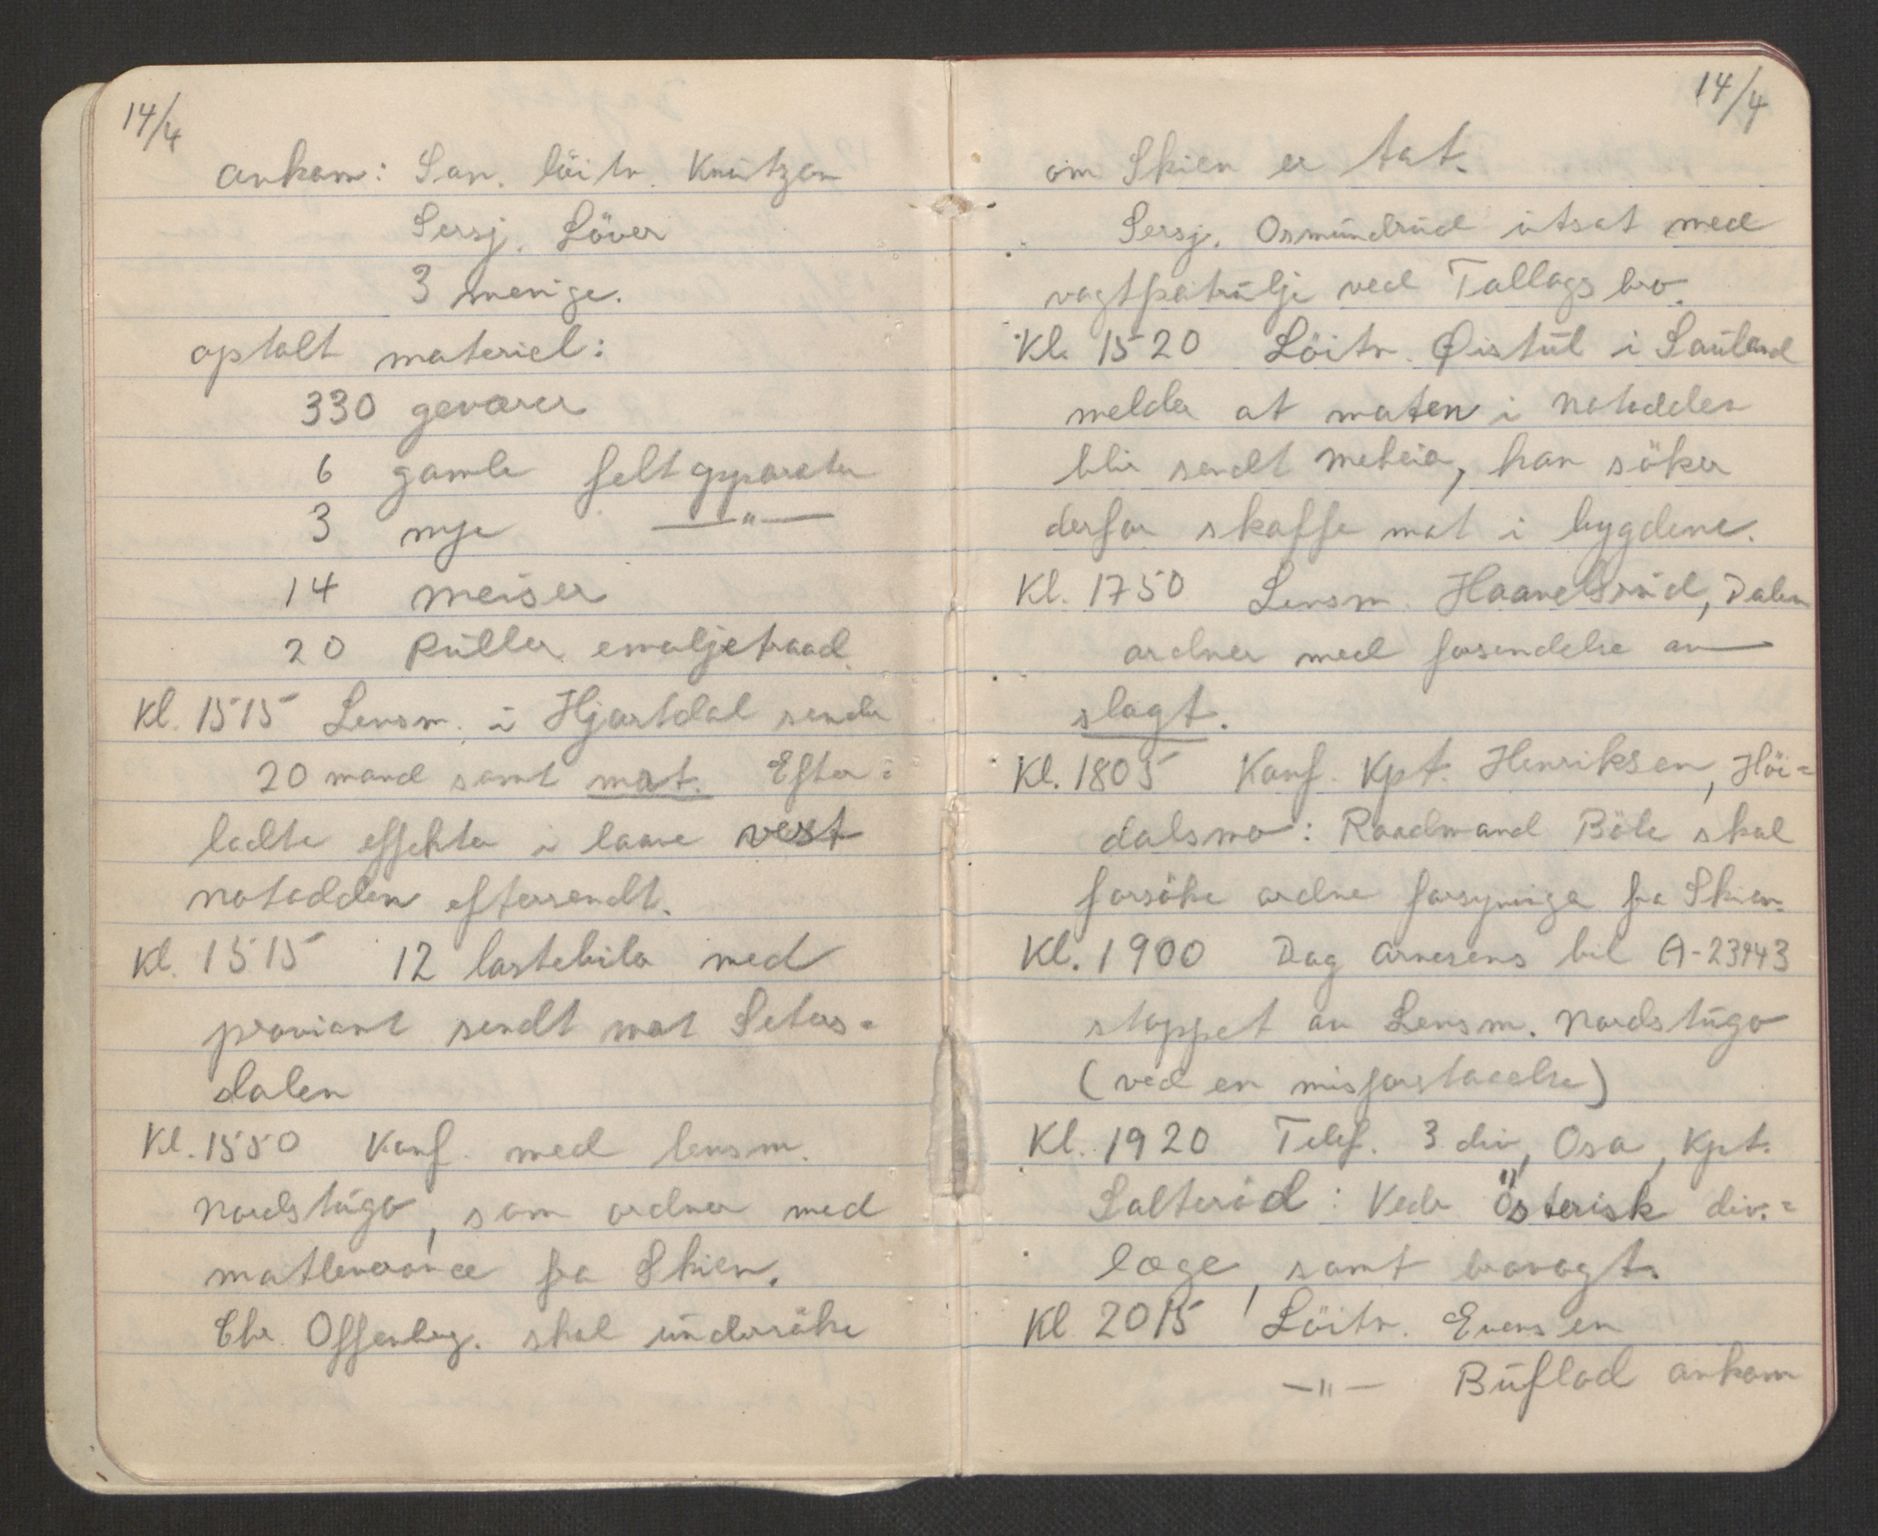 14/4
ankom: San. löitn. Knutzon
Sersj. Löver
3 menige.
optalt materiel:
330 geværer
6 gamle feltapparater
3 nye —"—
14 meiser
20 Ruller emaljetraad.
Kl. 1515 Lensm. i Hjartdal sender
20 mand samt mat. Efter=
ladte effekter i laave vest
Notodden eftersendt.
Kl. 1515 12 lastebiler med
proviant sendt mot Seters=
dalen
Kl. 1550 Konf. med lensm.
Nordstugo, som ordner med
matleverance fra Skien.
Chr. Offenberg. skal undersöke
14/4
om Skien er tat.
Sersj. Osmundrud utsat med
vagtpatrulje ved Tallags bro.
Kl. 1520 Löitn. Øistul i Sauland
melder at maten i Notodden
blir sendt Meheia, han söker
derfor skaffe mat i bygdene.
Kl. 1750 Lensm. Haandsrud, Dalen
ordner med forsendelse av
slagt.
Kl. 1805 Konf. Kpt. Henriksen, Höi=
dalsmo: Raadmand Böle skal
forsöke ordne forsyninger fra Skien.
Kl. 1900 Dag Arnesens bil A-23443
stoppet av Lensm. Nordstugo
(ved en misforstaaelse)
Kl. 1920 Telef. 3 div, Osa, Kpt.
Salteröd: Vedr Österisk div.=
læge, samt brovagt.
Kl 2015 Löitn. Evensen
—"— Buflod ankom